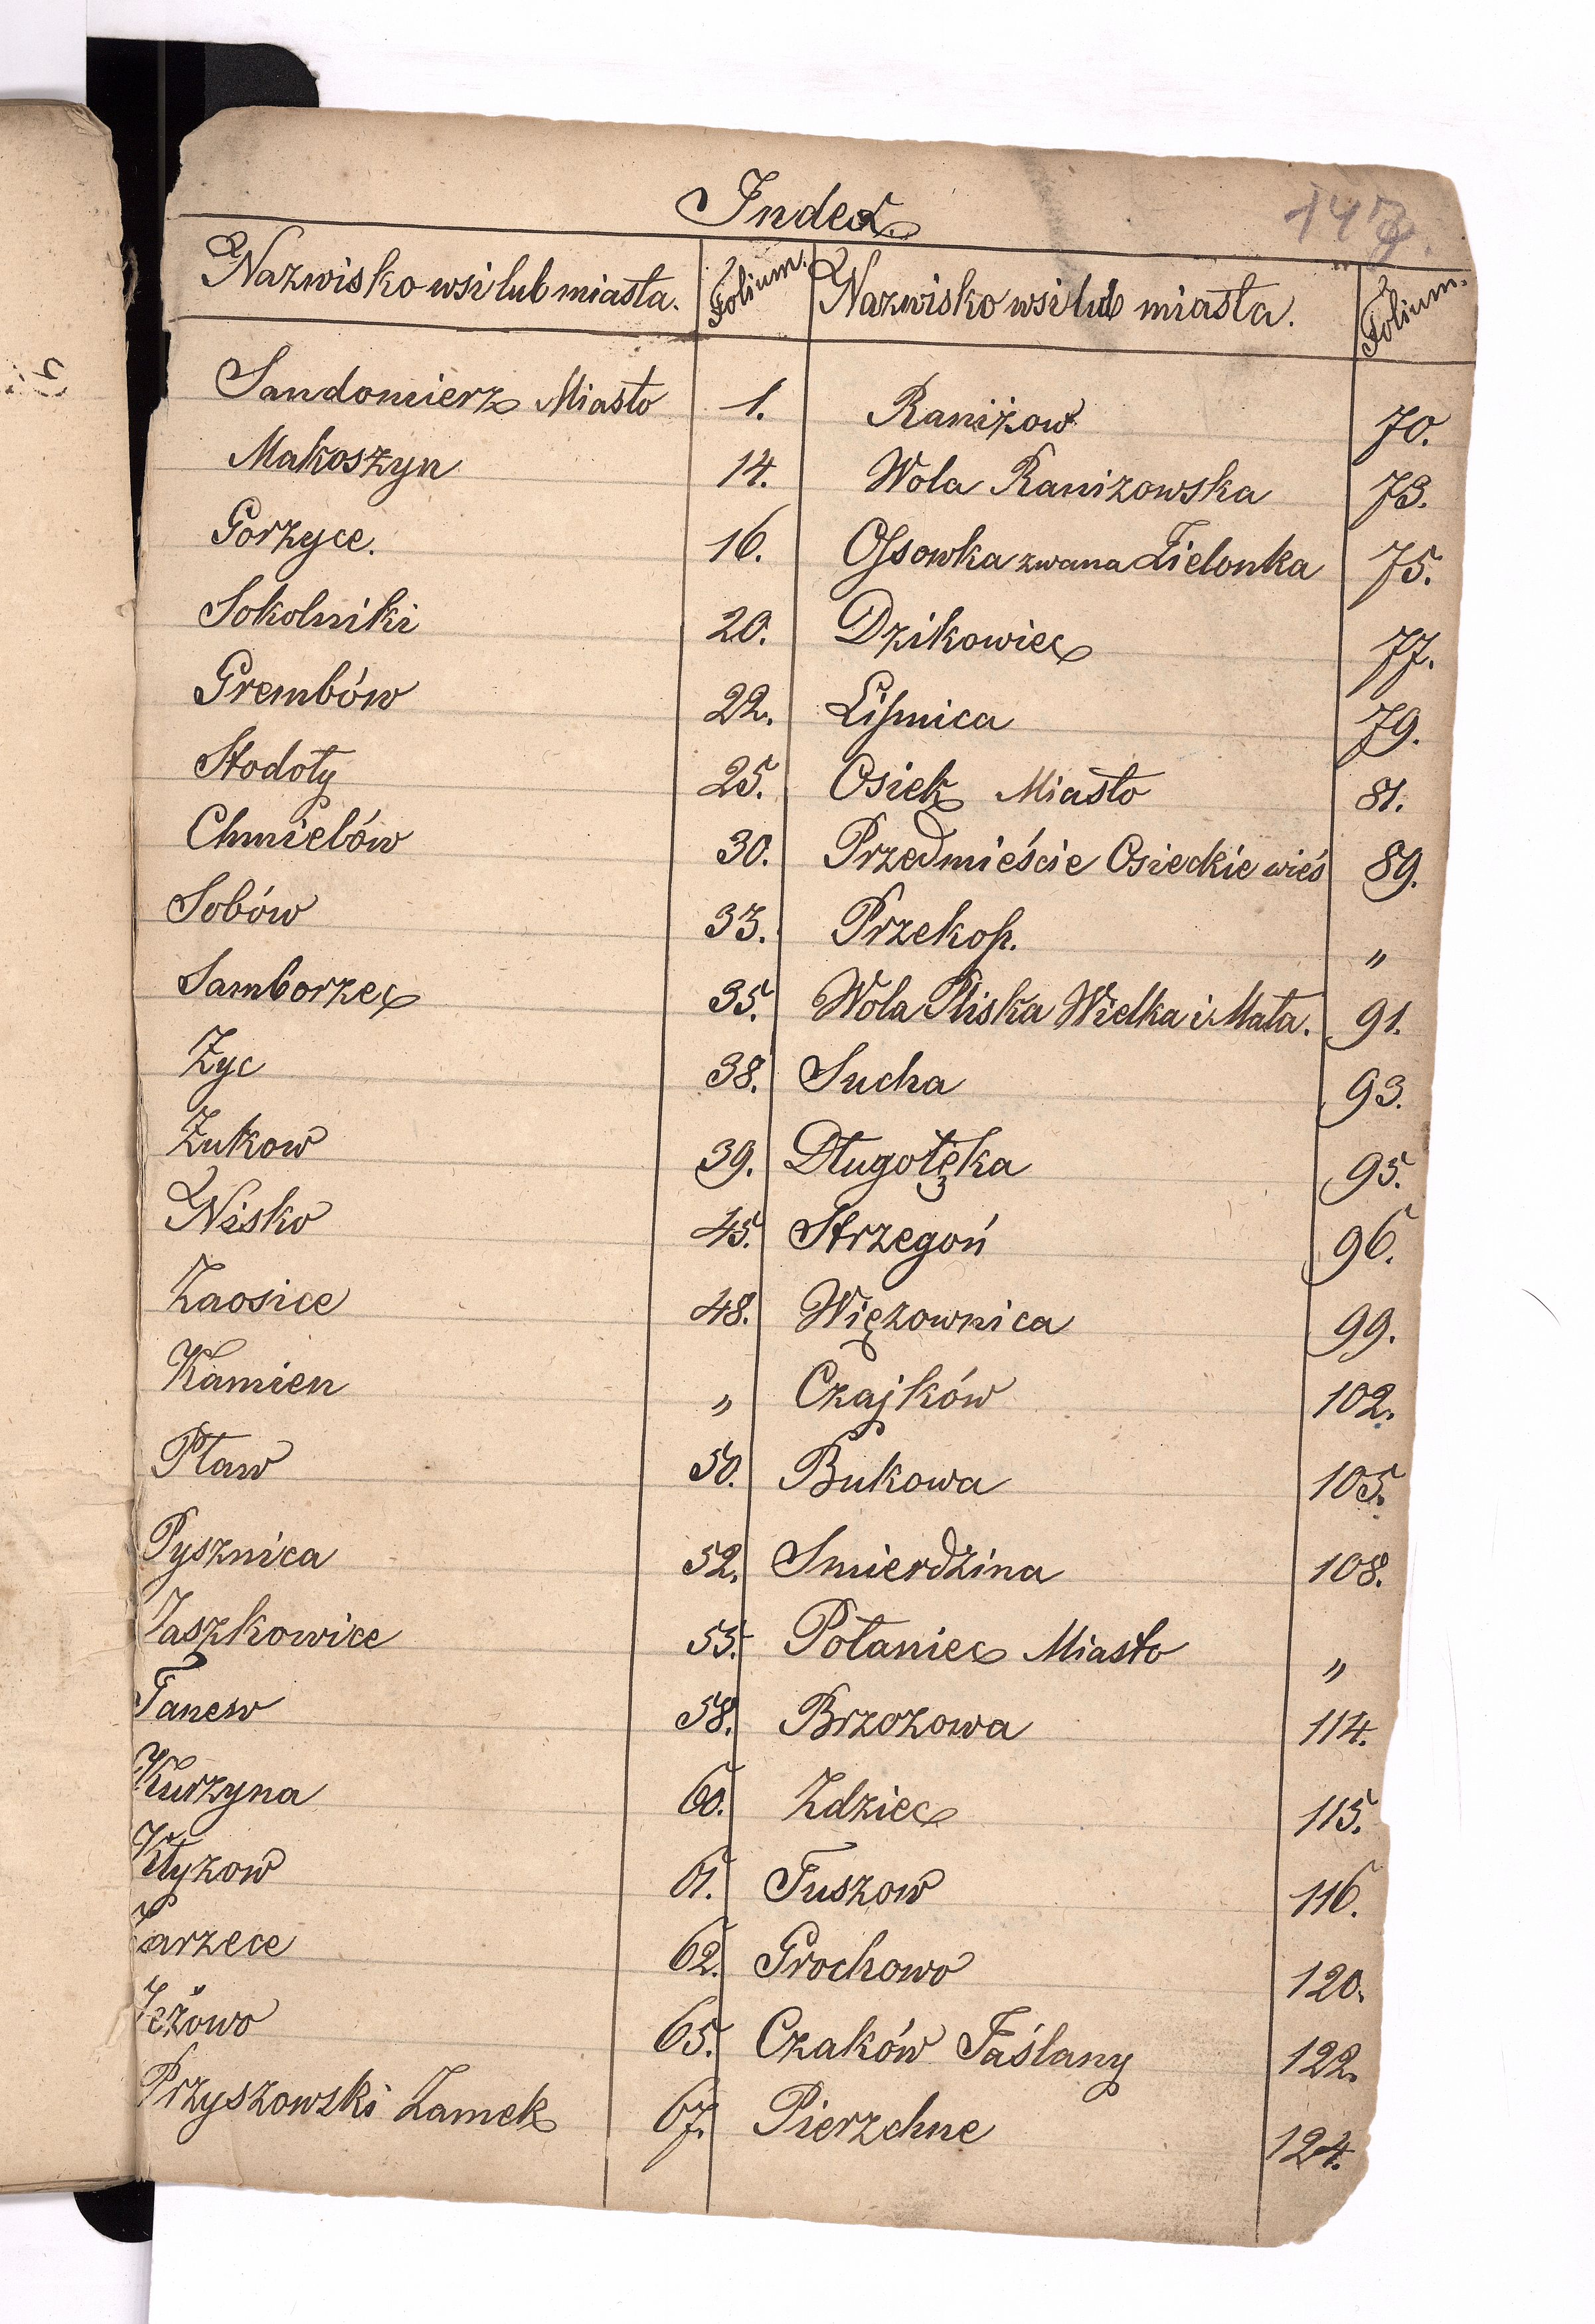 147.
Index.
Nazwisko wsi lub miasta. Folium. Nazwisko wsi lub miasta. Folium.
Sandomierz Miasto 1. Raniżow 70.
Makoszyn 14. Wola Ranizowska 73.
Gorzyce. 16. Ossowka zwana Zielonka 75.
Sokolniki 20. Dzikowiec 77.
Grembów 22. Lissnica 79.
Stodoły 25. Osiek Miasto 81.
Chmielów 30. Przedmieście Osieckie wieś 89.
Sobów 33. Przekop. "
Samborzec 35. Wola Pliska Wielka i Mała. 91.
Zyc 38. Sucha 93.
Zukow 39. Długołęka 95.
Nisko 45. Strzegoń 96.
Zaosice 48. Więzownica 99.
Kamien " Czajków 102.
Pław 50. Bukowa 105.
Pysznica 52. Smierdzina 108.
Jaszkowice 55. Połaniec Miasto "
Tanew 58. Brzozowa 114.
Kurzyna 60. Zdziec 115.
Kłyzow 61. Tuszow 116.
Zarzece 62. Grochowo 120.
Jeżowo 65. Czaków Taślany 122.
Przyszowski Zamek 67. Pierzchne 124.